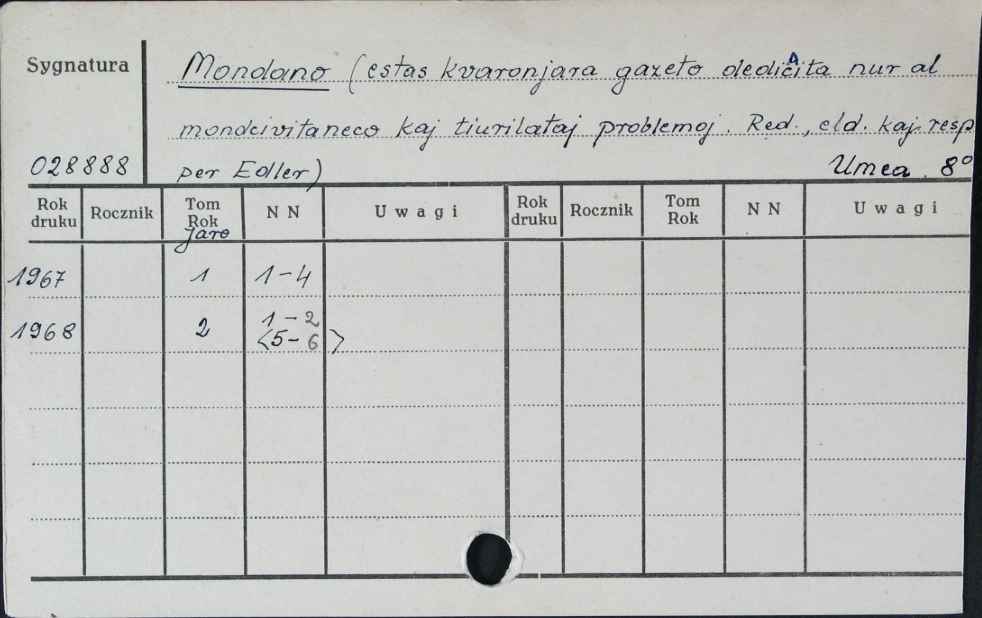 Sygnatura
Mondano (estas kvaronjara gazeto dediĉita nur al
mondcivitaneco kaj tiurilataj problemoj. Red., eld. kaj resp
028888
per Edler)
Umea 8°
Rok druku Rocznik Tom Rok N N Uwagi Rok druku Rocznik Tom Rok N N Uwagi
Jaro
1967 1 1-4
1968 2 1-2
<5-6>